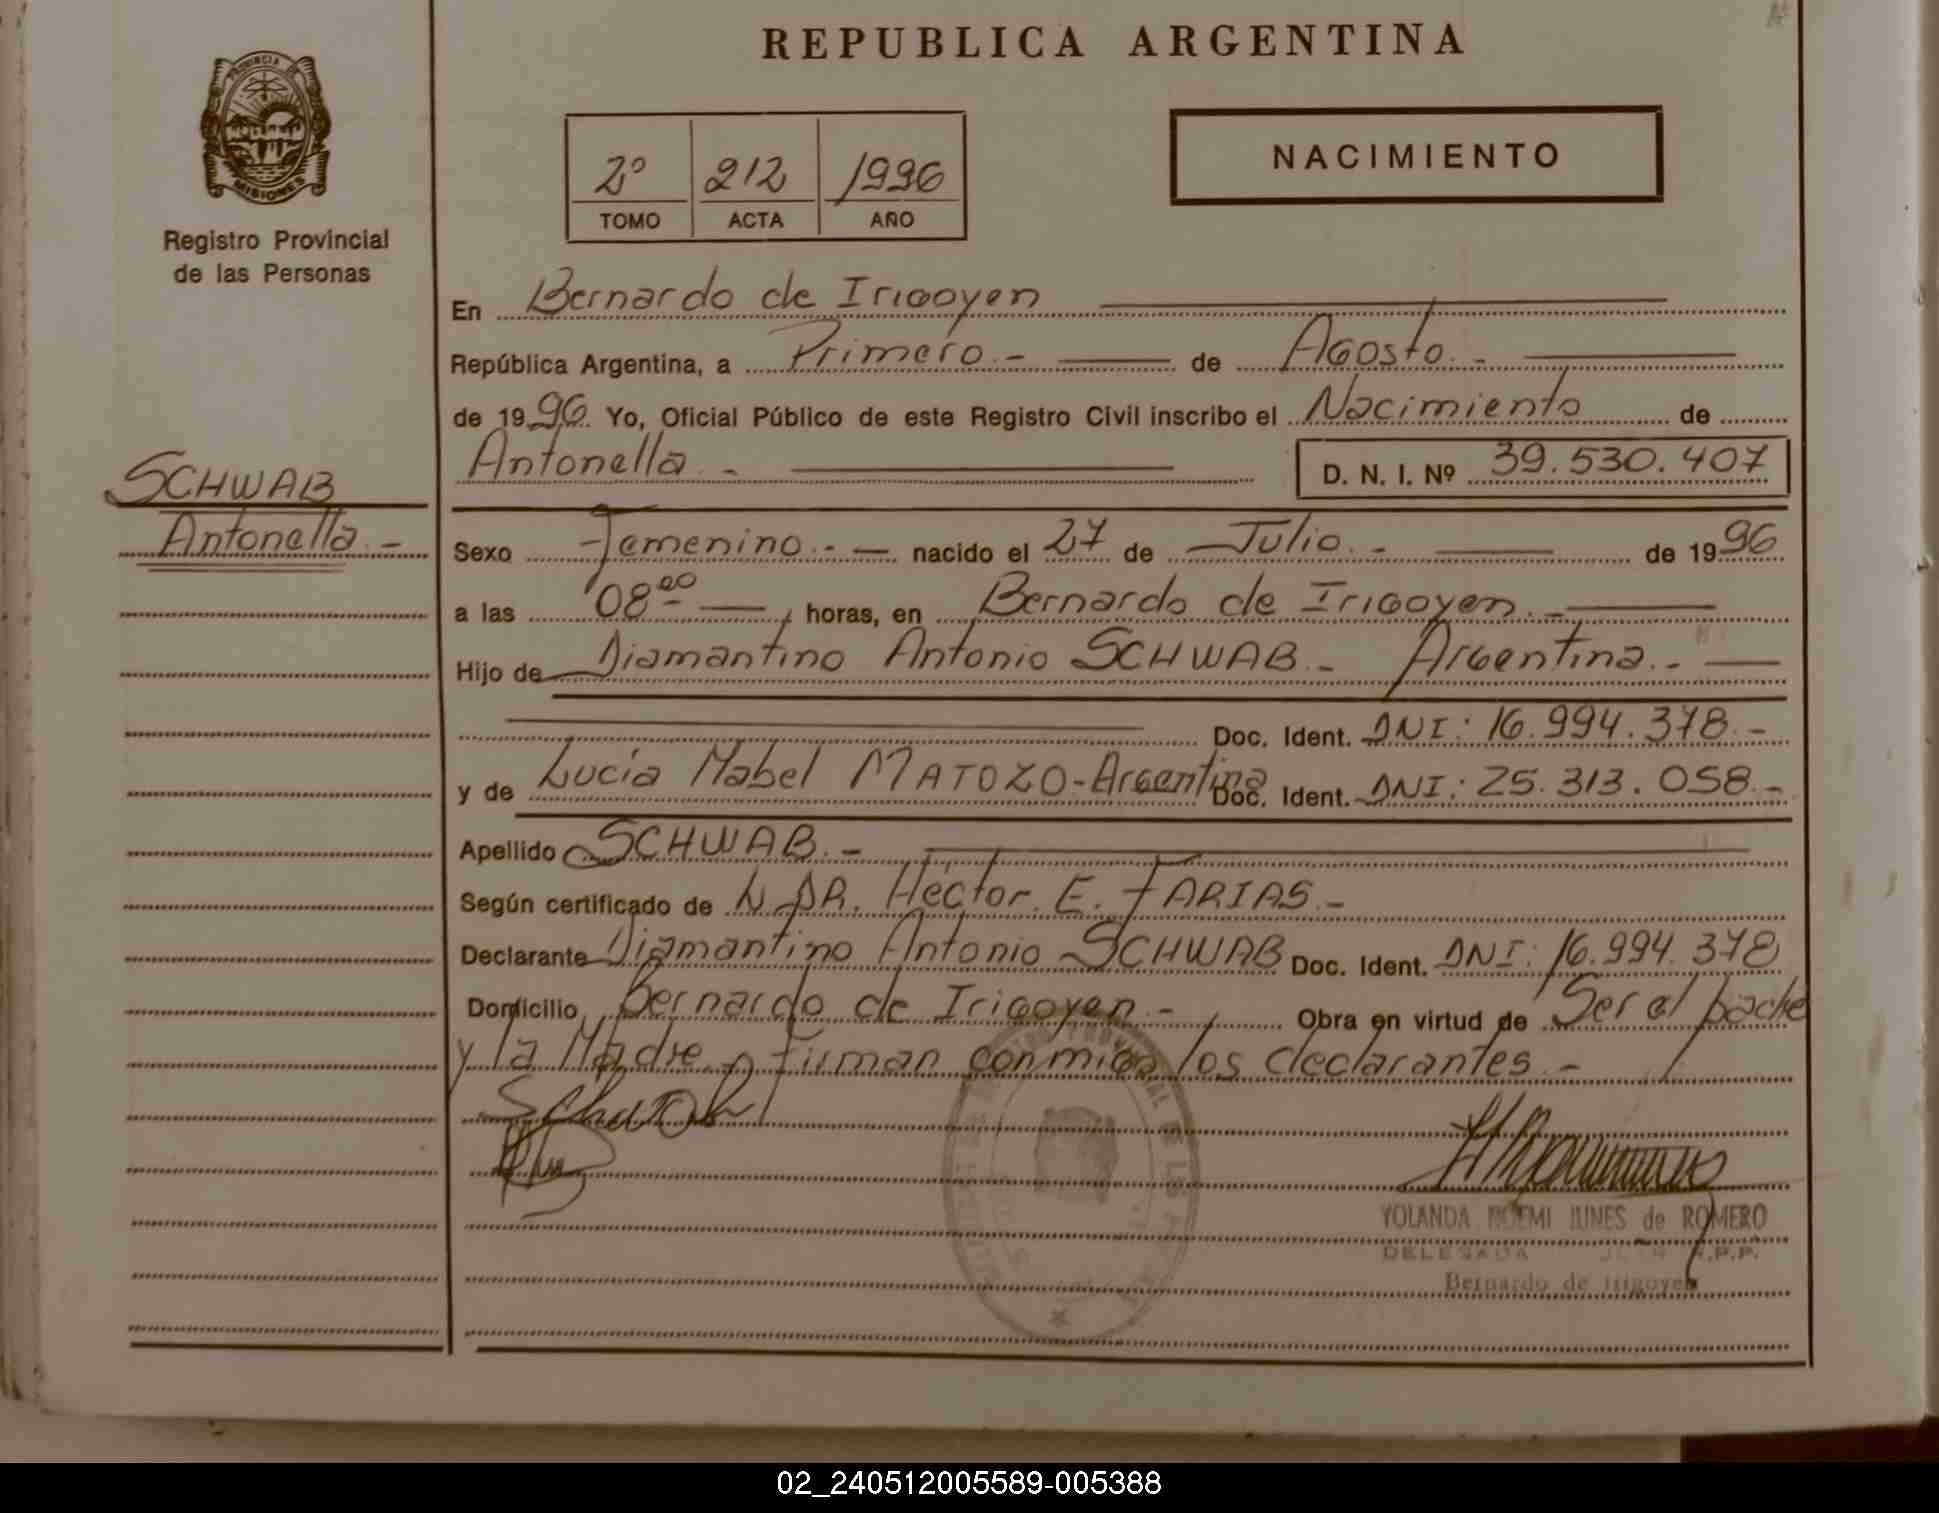 REPUBLICA ARGENTINA
PROVINCIA DE
MISIONES
Registro Provincial
de las Personas
2º 212 1996
TOMO ACTA AÑO
NACIMIENTO
En Bernardo de Irigoyen
República Argentina, a Primero.- de Agosto.-
de 1996. Yo, Oficial Público de este Registro Civil inscribo el Nacimiento de
Antonella.- D. N. I. Nº 39.530.407
SCHWAB
Antonella.-
Sexo Femenino.- nacido el 27 de Julio.- de 1996
a las 08 00 horas, en Bernardo de Irigoyen.-
Hijo de Diamantino Antonio SCHWAB.- Argentina.-
Doc. Ident. DNI: 16.994.378.-
y de Lucía Mabel MATOZO-Argentina Doc. Ident. DNI: 25.313.058.-
Apellido SCHWAB.-
Según certificado de N. DR. Héctor. E. FARIAS.-
Declarante Diamantino Antonio SCHWAB Doc. Ident. DNI: 16.994.378
Domicilio Bernardo de Irigoyen.- Obra en virtud de Ser el padre
y la Madre, firman conmigo los declarantes.-
Schwab
YOLANDA NOEMI de ROMERO
DELEGADA R.P.P.
Bernardo de Irigoyen
02_240512005589-005388